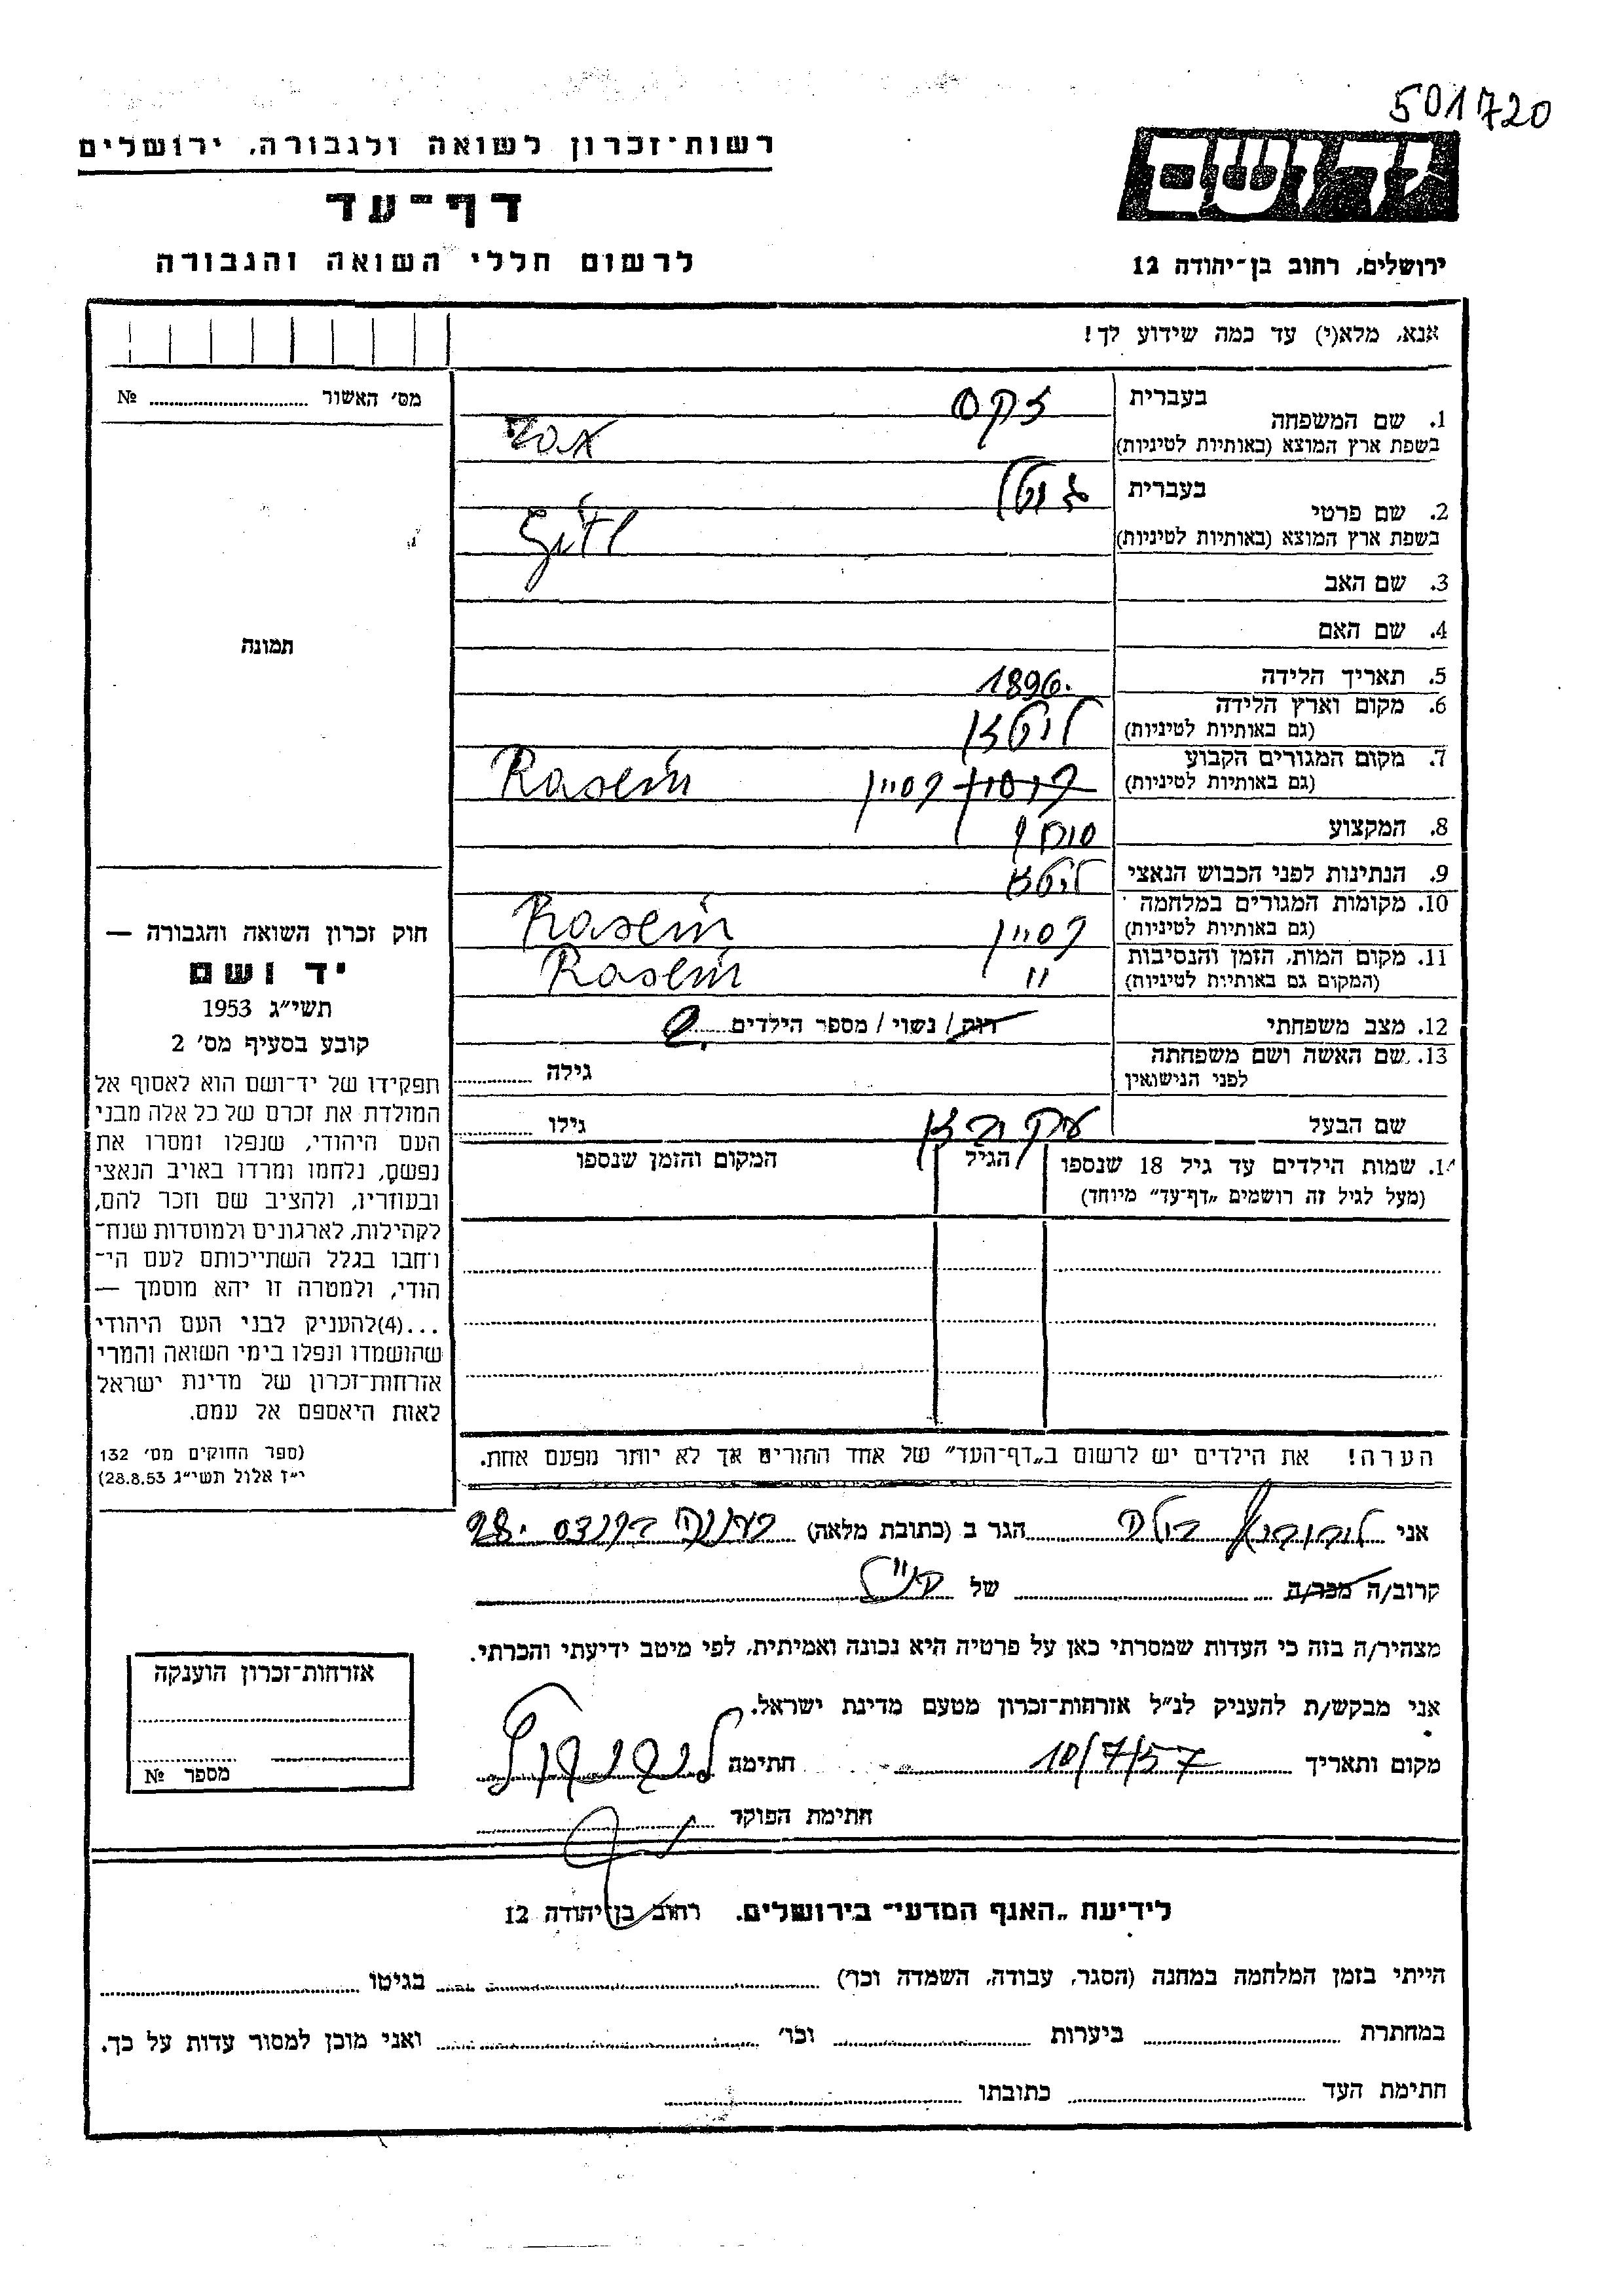 501720
רשות־זכרון לשואה ולגבורה, ירושלים
דף־עד
לרשום חללי השואה והגבורה
יד ושם
ירושלים, רחוב בן־יהודה 12
אנא, מלא(י) עד כמה שידוע לך!
מס׳ האשור № 
1. שם המשפחה
בעברית זקס
בשפת ארץ המוצא (באותיות לטיניות)
2. שם פרטי
בעברית גיטל
בשפת ארץ המוצא (באותיות לטיניות) Gitl
3. שם האב
4. שם האם
5. תאריך הלידה 1896.
6. מקום וארץ הלידה ליטא
(גם באותיות לטיניות)
7. מקום המגורים הקבוע רסיין Rasein
(גם באותיות לטיניות)
8. המקצוע סוחר
9. הנתינות לפני הכבוש הנאצי ליטא
10. מקומות המגורים במלחמה רסיין Rasein
(גם באותיות לטיניות)
11. מקום המות, הזמן והנסיבות " Rasein
(המקום גם באותיות לטיניות)
12. מצב משפחתי רוק/ נשוי/ מספר הילדים
13. שם האשה ושם משפחתה
לפני הנישואין
גילה
שם הבעל
גילו
14. שמות הילדים עד גיל 18 שנספו
(מעל לגיל זה רושמים „דף־עד״ מיוחד)
הגיל
המקום והזמן שנספו
הערה! את הילדים יש לרשום ב„דף־העד״ של אחד ההורים אך לא יותר מפעם אחת.
תמונה
חוק זכרון השואה והגבורה —
יד ושם
תשי״ג 1953
קובע בסעיף מס׳ 2
תפקידו של יד־ושם הוא לאסוף אל
המולדת את זכרם של כל אלה מבני
העם היהודי, שנפלו ומסרו את
נפשם, נלחמו ומרדו באויב הנאצי
ובעוזריו, ולהציב שם וזכר להם,
לקהילות, לארגונים ולמוסדות שנח־
רבו בגלל השתייכותם לעם הי־
הודי, ולמטרה זו יהא מוסמך —
...(4)להעניק לבני העם היהודי
שהושמדו ונפלו בימי השואה והמרי
אזרחות־זכרון של מדינת ישראל
לאות היאספם אל עמם.
(ספר החוקים מס׳ 132
י״ז אלול תשי״ג 28.8.53)
אני הגר ב (כתובת מלאה) 28
קרוב/ה מכר/ה של
מצהיר/ה בזה כי העדות שמסרתי כאן על פרטיה היא נכונה ואמיתית, לפי מיטב ידיעתי והכרתי.
אני מבקש/ת להעניק לנ״ל אזרחות־זכרון מטעם מדינת ישראל.
מקום ותאריך 10/7/57 חתימה
חתימת הפוקד
אזרחות־זכרון הוענקה
מספר №
לידיעת „האגף המדעי״ בירושלים. רחוב בן־יהודה 12
הייתי בזמן המלחמה במחנה (הסגר, עבודה, השמדה וכו׳) בגיטו
במחתרת ביערות וכו׳ ואני מוכן למסור עדות על כך.
חתימת העד כתובתו